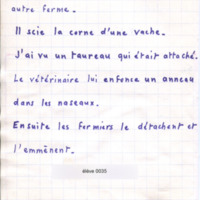 autre ferme.
Il scie la corne d'une vache.
J'ai vu un taureau qui était attaché.
Le vétérinaire lui enfonce un anneau
dans les naseaux.
Ensuite les fermiers le détachent et
l'emmènent.
élève 0035